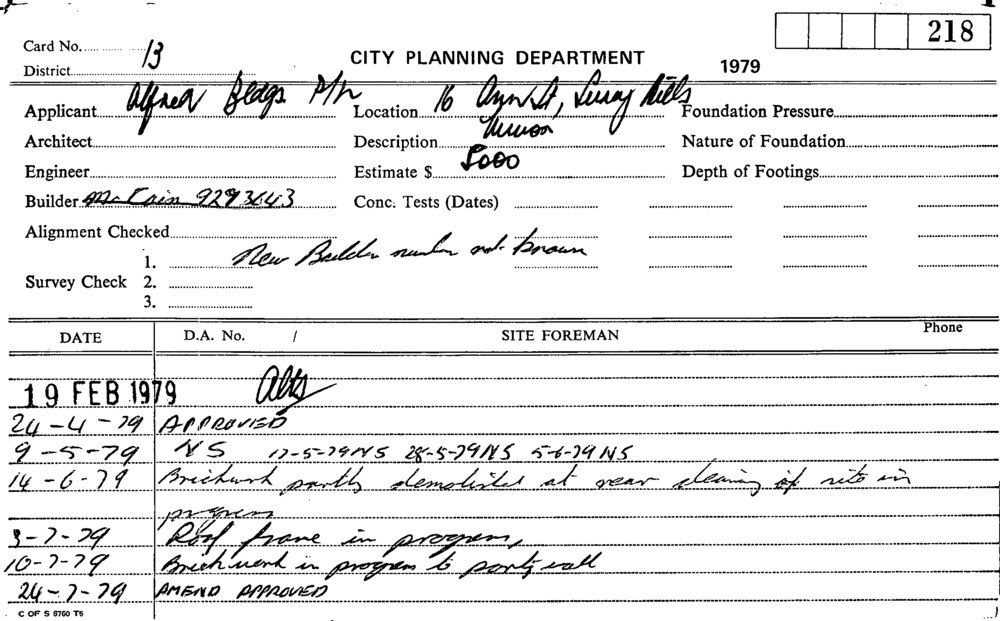 218
Card No. 13
CITY PLANNING DEPARTMENT
District
1979
Applicant Alfred Bldgs P/L Location 16 Ann St, Surry Hills Foundation Pressure
Architect Description Nature of Foundation
Engineer Estimate $ 5000 Depth of Footings
Builder McCain 9293643 Conc. Tests (Dates)
Alignment Checked
1. New Builder number not known
Survey Check 2.
3.
DATE D.A. No. / SITE FOREMAN Phone
19 FEB 1979 Alts
24-4-79 APPROVED
9-5-79 NS 17-5-79 NS 28-5-79 NS 5-6-79 NS
14-6-79 Brickwork partly demolished at rear clearing of site in
progress
3-7-79 Roof frame in progress,
10-7-79 Brickwork in progress to party wall
24-7-79 AMEND APPROVED
C OF S 6760 T6